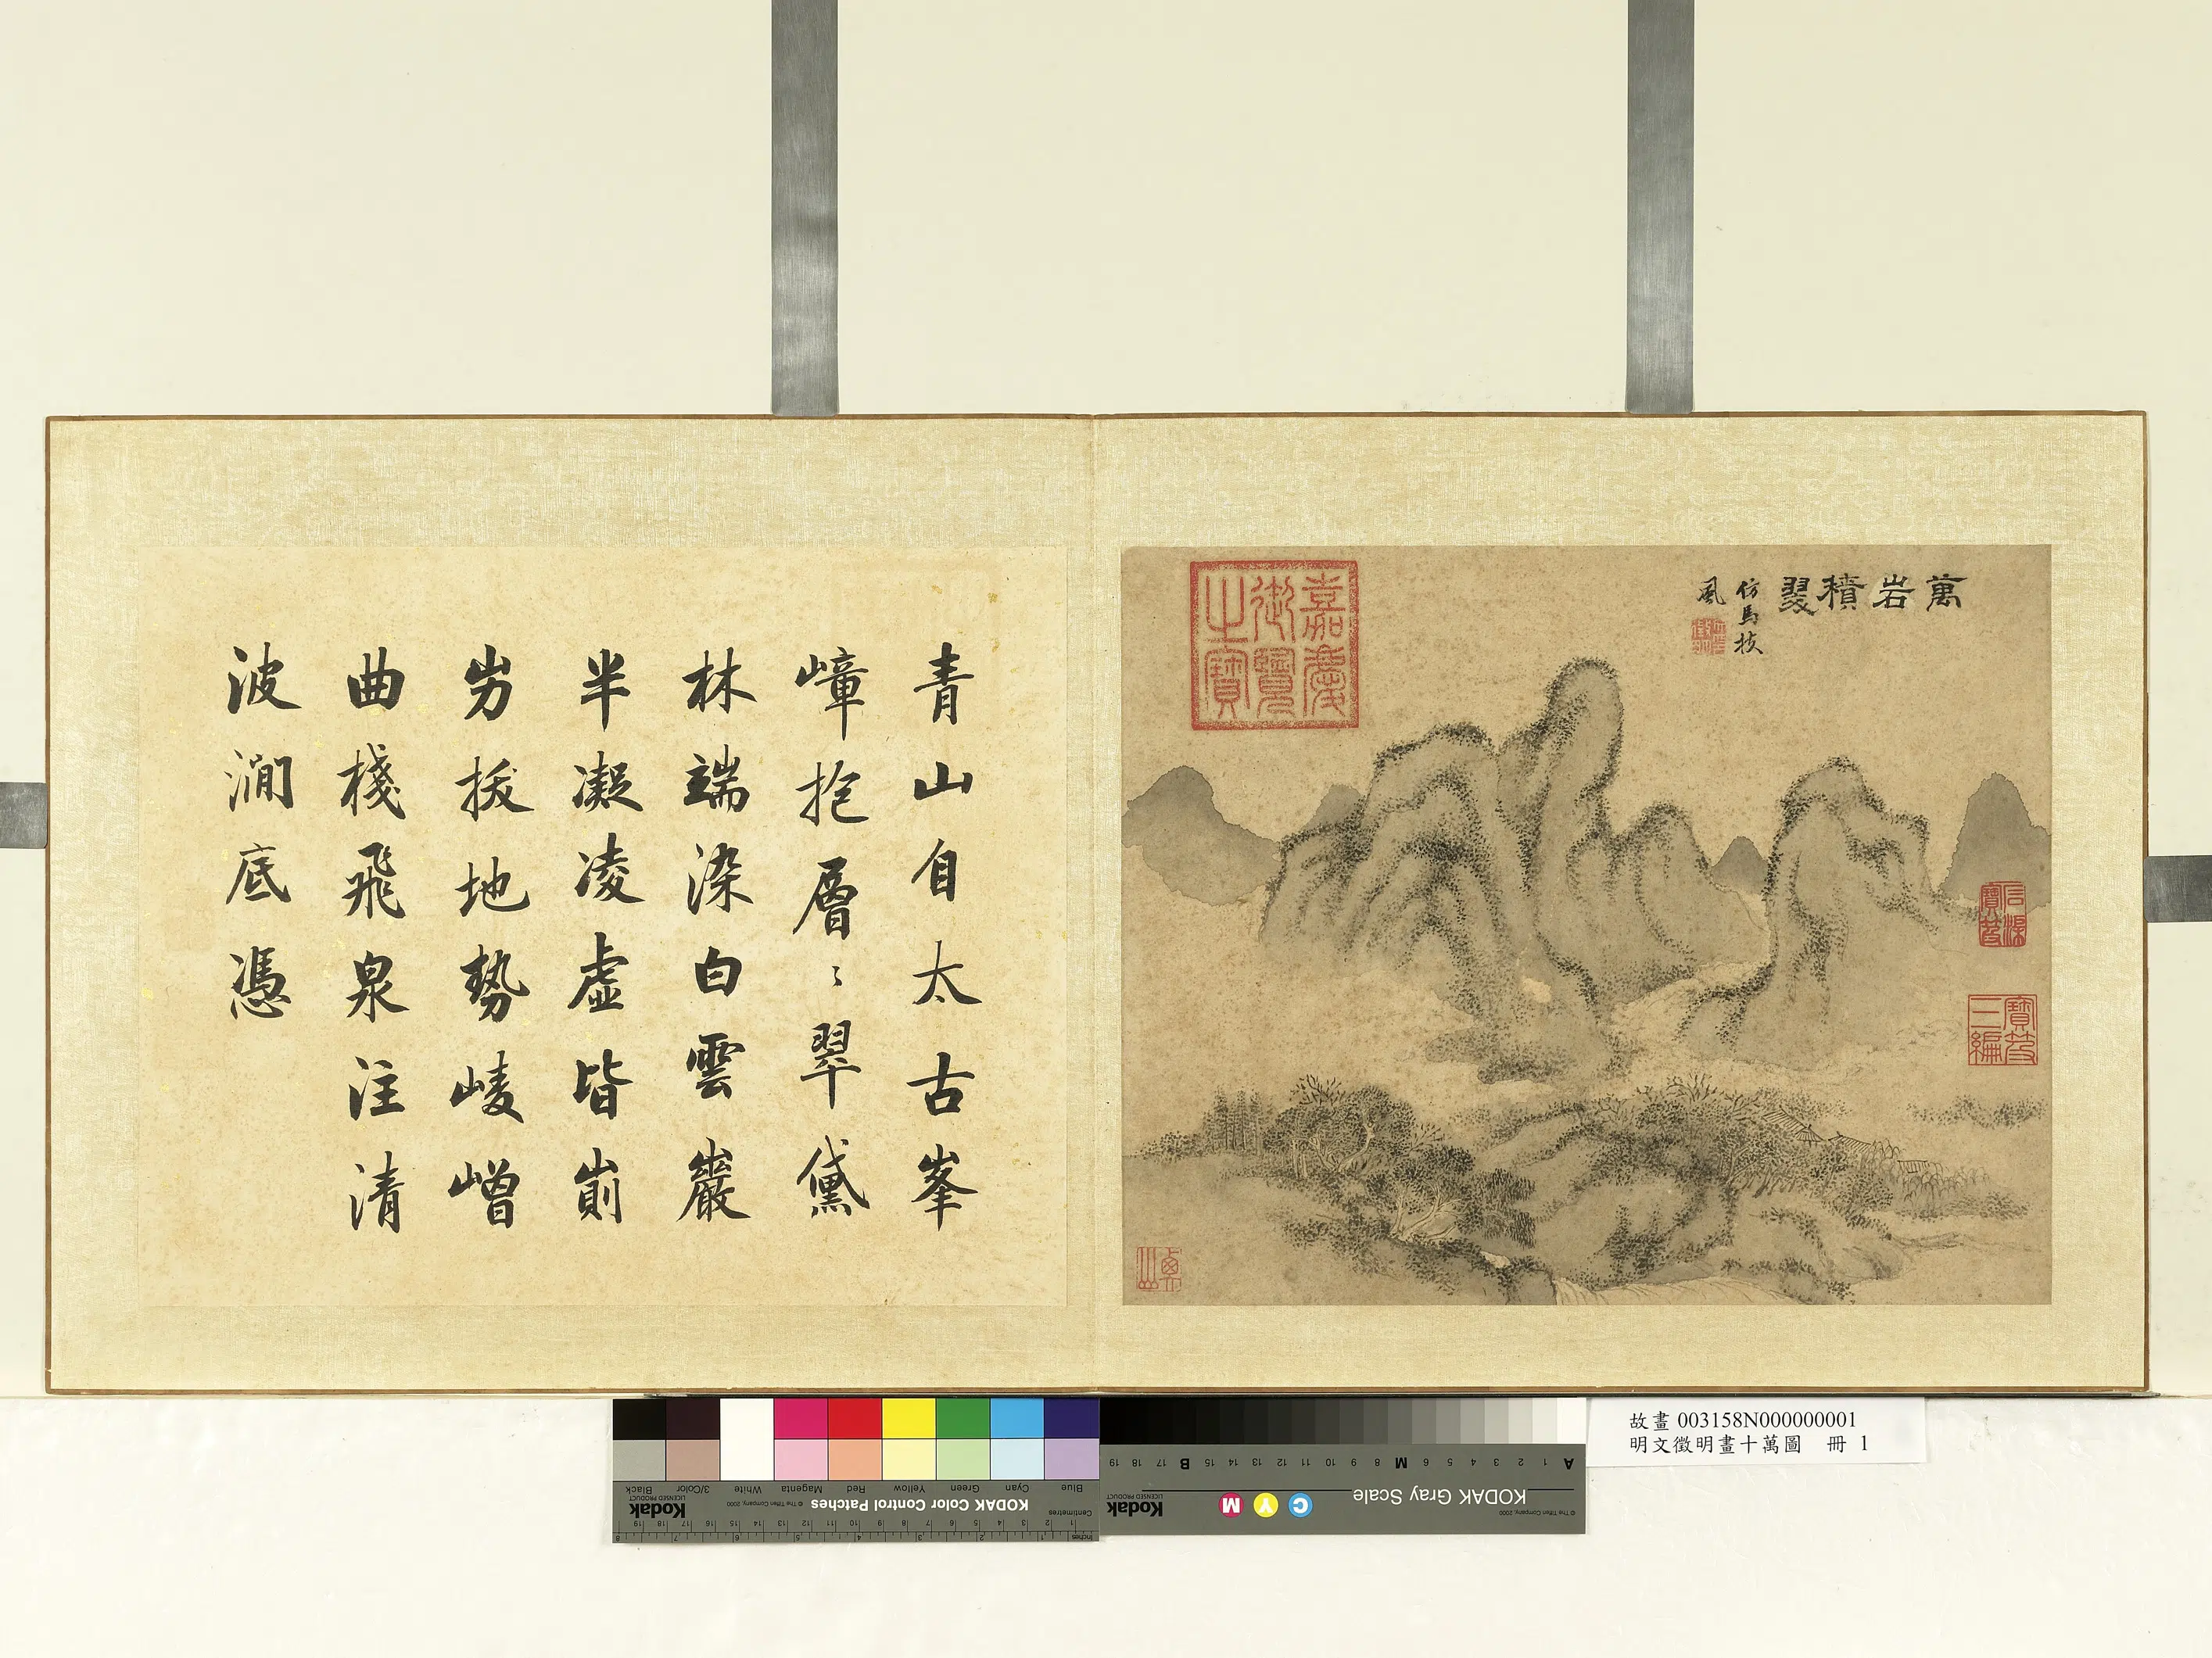 萬岩積翠
仿馬扶
風
嘉慶
御覽
之寶
石渠
寶笈
寶笈
三編
青山自太古峯
嶂抱層〻翠黛
林端染白雲巖
半凝凌虛皆崱
屴拔地勢崚嶒
曲棧飛泉注清
波澗底憑
故畫 003158N000000001
明文徵明畫十萬圖 冊 1
Blue Cyan Green Yellow Red Magenta White 3/Color Black
KODAK Color Control Patches
© The Tiffen Company, 2000
Kodak
LICENSED PRODUCT
Centimetres
Inches
KODAK Gray Scale
C Y M
Kodak
LICENSED PRODUCT
© The Tiffen Company, 2000
A 1 2 3 4 5 6 M 8 9 10 11 12 13 14 15 B 17 18 19